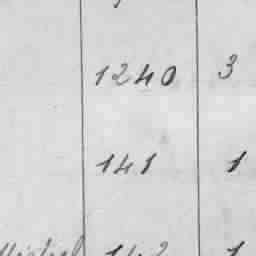 1240 3
141 1
142 1